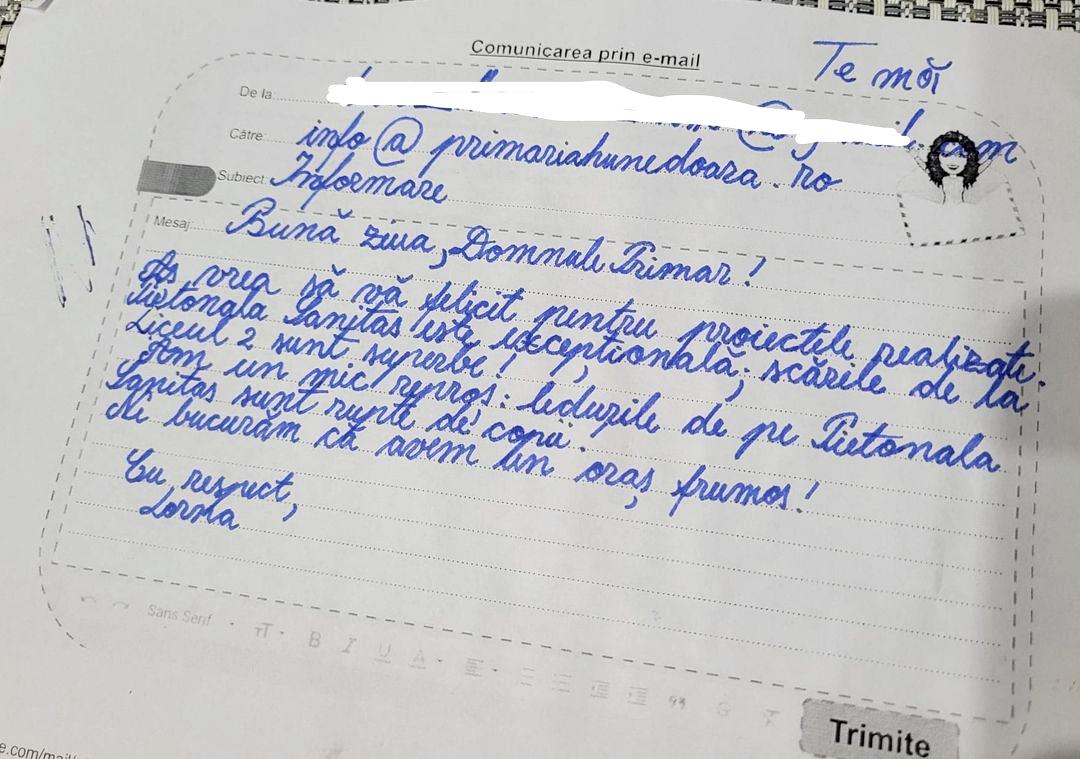 Comunicarea prin e-mail
Te mőı
De la
com
Către: info@primariahunedoara.ro
Subiect: Informare
Mesaj: Bună ziua, Domnule Primar!
Aș vrea să vă felicit pentru proiectele realizate.
Pietonala Sanitas este excepțională; scările de la
Liceul 2 sunt superbe!
Am un mic reproș: ledurile de pe Pietonala
Sanitas sunt rupte de copii.
Ne bucurăm că avem un oraș frumos!
Cu respect,
Sans Serif
B I U A
Trimite